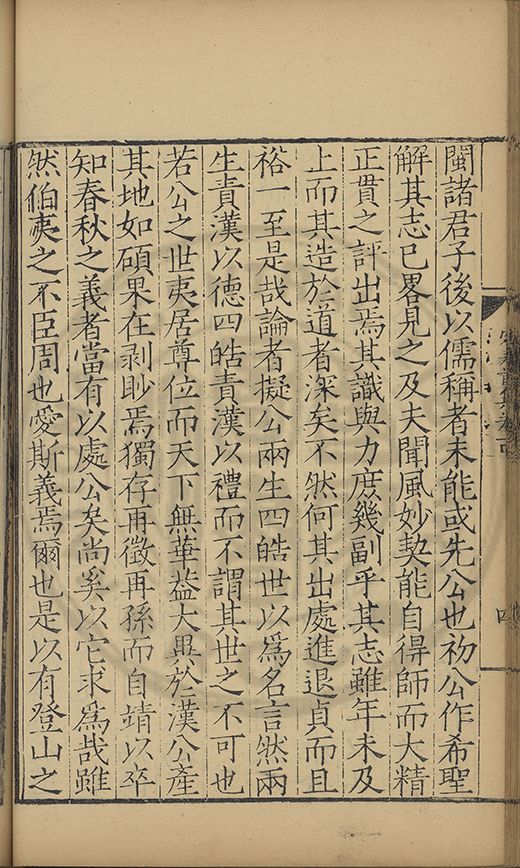 閩諸君子後以儒稱者未能或先公也初公作希聖
解其志已畧見之及夫聞風妙契能自得師而大精
正貫之評出焉其識與力庶幾副乎其志雖年未及
上而其造於道者深矣不然何其出處進退貞而且
裕一至是哉論者擬公兩生四皓世以爲名言然兩
生責漢以德四皓責漢以禮而不謂其世之不可也
若公之世夷居尊位而天下無華益大異於漢公產
其地如碩果在剥眇焉獨存再徵再孫而自靖以卒
知春秋之義者當有以處公矣尚奚以它求爲哉雖
然伯夷之不臣周也愛斯義焉爾也是以有登山之